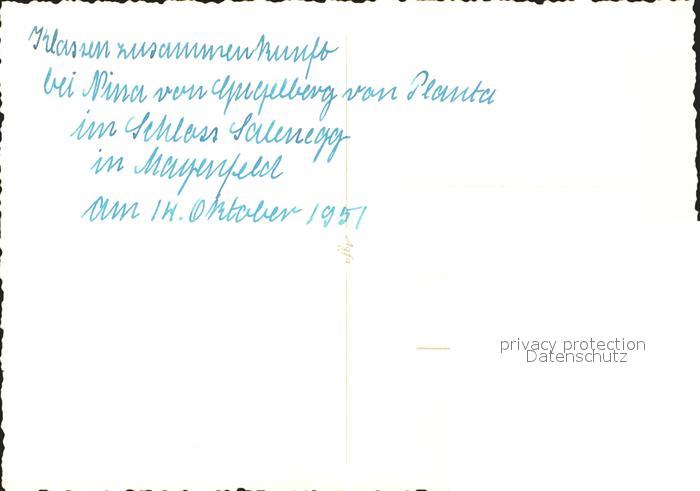 Klassenzusammenkunft
bei Nina von Gugelberg von Planta
im Schloss Salenegg
in Mayenfeld
am 14. Oktober 1951
Agfa
privacy protection
Datenschutz